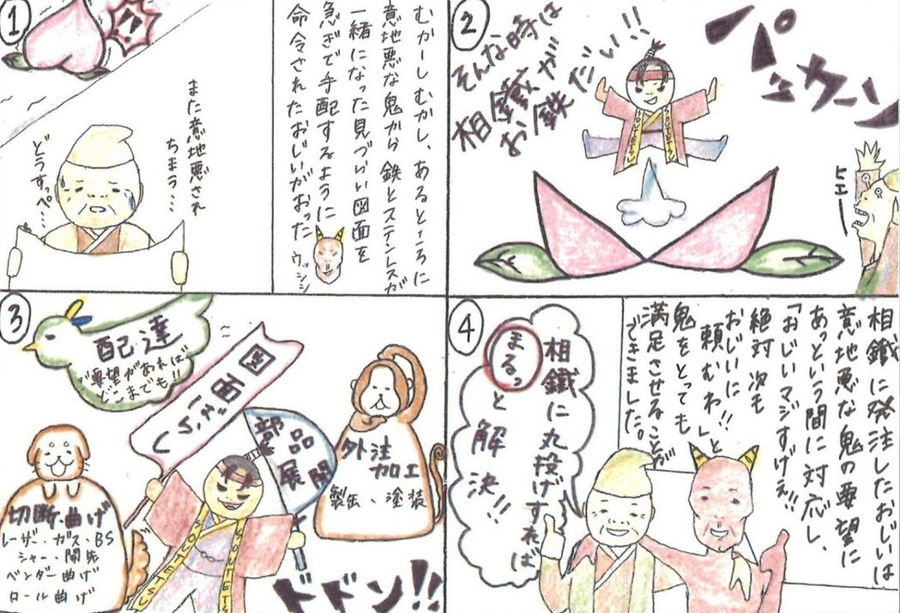 ①
むかーしむかし、あるところに
意地悪な鬼から 鉄とステンレスが
一緒になった見づらい図面を
急ぎで手配するように
命令されたおじいがおった
ウッシシ
また意地悪され
ちまう…
どうすっぺ…
②
パッカーン
そんな時は
相鐵が
お鉄だい!!
ヒエー
③
配達
ご要望があれば
どこまでも!!
図面ばらし
部品
展開
外注
加工
製缶、塗装
切断・曲げ
レーザ・ガス・BS
シャー・開先
ベンダー曲げ
ロール曲げ
SOUTETSU
ドドン!!
④
相鐵に発注したおじいは
意地悪な鬼の要望に
あっという間に対応し、
「おじいマジすげえ!!
絶対次も
おじいに!!
頼むわ」と
鬼をとっても
満足させることが
できました。
相鐵に丸投げすれば
まるっと解決!!